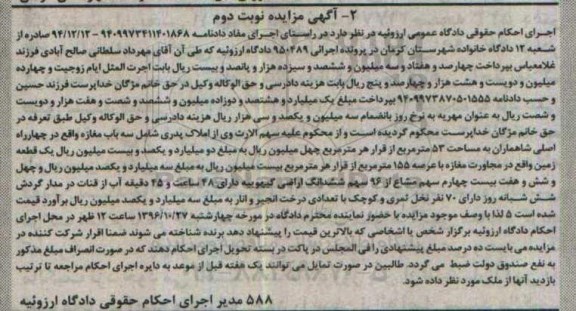 ۲- آگهی مزایده نوبت دوم
اجرای احکام حقوقی دادگاه عمومی ارزوئیه در نظر دارد در راستای اجرای مفاد دادنامه ۹۴۰۹۹۷۳۴۱۱۴۰۱۸۶۸ - ۹۴/۱۲/۱۳ صادره از
شعبه ۱۲ دادگاه خانواده شهرستان کرمان در پرونده اجرائی ۹۵۰۴۸۹ دادگاه ارزوئیه که طی آن آقای مهرداد سلطانی صالح آبادی فرزند
غلامعباس بپرداخت چهارصد و هفتاد و سه میلیون و ششصد و سیزده هزار و پانصد و بیست ریال بابت اجرت المثل ایام زوجیت و چهارده
میلیون و دویست و هشت هزار و چهارصد و پنج ریال بابت هزینه دادرسی و حق الوکاله وکیل در حق خانم مژگان خداپرست فرزند حسین
و حسب دادنامه ۹۴۰۹۹۷۳۸۷۰۵۰۱۵۵۵ بپرداخت مبلغ یک میلیارد و هشتصد و دوازده میلیون و ششصد و شصت و هفت هزار و دویست
و شصت ریال به عنوان مهریه به نرخ روز بانضمام سه میلیون و یکصد و سی هزار ریال هزینه دادرسی و حق الوکاله وکیل طبق تعرفه در
حق خانم مژگان خداپرست محکوم گردیده است و از محکوم علیه سهم الارث وی از املاک پدری شامل سه باب مغازه واقع در چهارراه
اصلی شاهماران به مساحت ۵۳ مترمربع از قرار هر مترمربع چهل میلیون ریال به مبلغ دو میلیارد و یکصد و بیست میلیون ریال یک قطعه
زمین واقع در مجاورت مغازه با عرصه ۱۵۵ مترمربع از قرار هر مترمربع بیست میلیون ریال به مبلغ سه میلیارد و یکصد میلیون ریال و چهل
و شش و هفت بیست چهارم سهم مشاع از ۹۶ سهم ششدانگ اراضی کیهوییه دارای ۴۸ ساعت و ۴۵ دقیقه آب از قنات در مدار گردش
شش شبانه روز دارای ۷۰ نفر نخل ثمری و کوچک با تعدادی درخت انجیر و انار به مبلغ سه میلیارد و یکصد میلیون ریال برآورد قیمت
شده است لذا با وصف موجود مزایده با حضور نماینده محترم دادگاه در مورخه چهارشنبه ۱۳۹۶/۱۰/۲۷ ساعت ۱۲ ظهر در محل اجرای
احکام دادگاه ارزوئیه برگزار شخص یا اشخاصی که بالاترین قیمت را پیشنهاد دهد برنده شناخته می شوند ضمنا افراد شرکت کننده در
مزایده می بایست ده درصد مبلغ پیشنهادی را فی المجلس در پاکت در بسته تحویل اجرای احکام دهند که در صورت انصراف مبلغ مذکور
به نفع صندوق دولت ضبط می گردد. طالبین در صورت تمایل می توانند یک هفته قبل از موعد به دایره اجرای احکام مراجعه تا ترتیب
بازدید آنها از ملک مورد نظر داده شود.
۵۸۸ مدیر اجرای احکام حقوقی دادگاه ارزوئیه